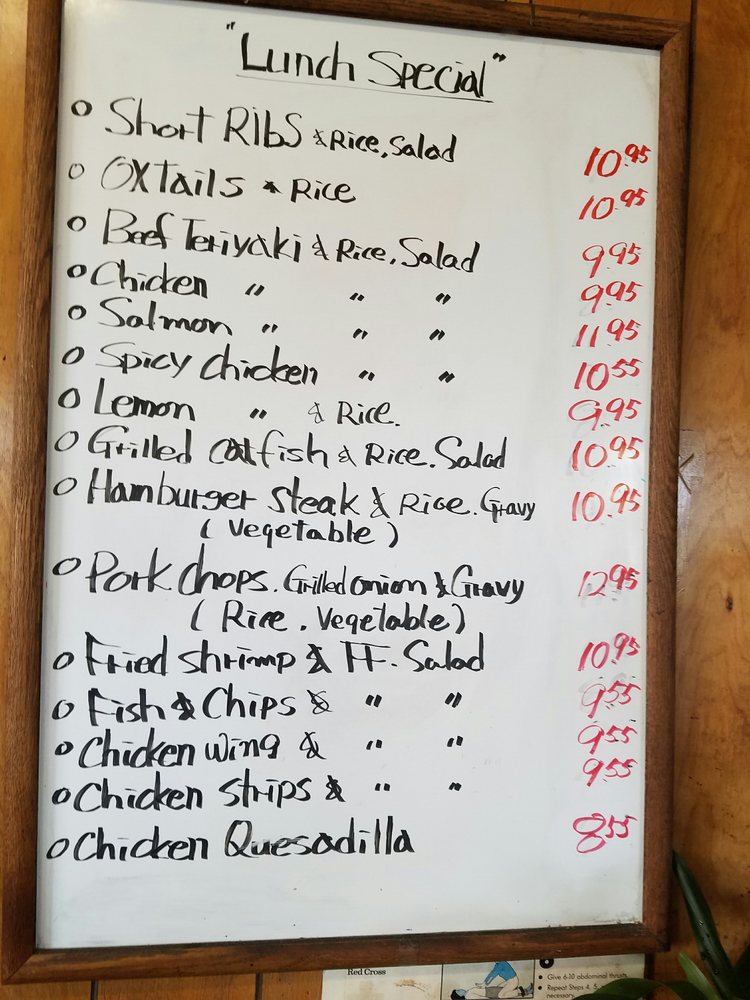 "Lunch Special"
o Short Ribs & Rice, Salad 10.95
o Oxtails & Rice 10.95
o Beef Teriyaki & Rice, Salad 9.95
o Chicken " " " 9.95
o Salmon " " " 11.95
o Spicy Chicken " " 10.55
o Lemon " & Rice. 9.95
o Grilled catfish & Rice. Salad 10.95
o Hamburger steak & Rice. Gravy 10.95
( Vegetable )
o Pork chops. Grilled onion & Gravy 12.95
( Rice . Vegetable )
o Fried shrimp & FF. Salad 10.95
o Fish & Chips & " " 9.55
o Chicken wing & " " 9.55
o Chicken strips & " " 9.55
o Chicken Quesadilla 8.55
Red Cross
• Give 6-10 abdominal thrusts.
• Repeat Steps 4, 5,
necessary